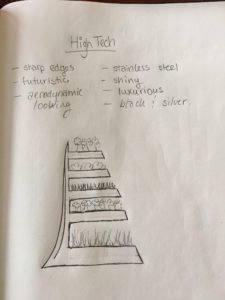 High Tech
- sharp edges
- futuristic
- aerodynamic
looking
- stainless steel
- shiny
- luxurious
- black & silver.